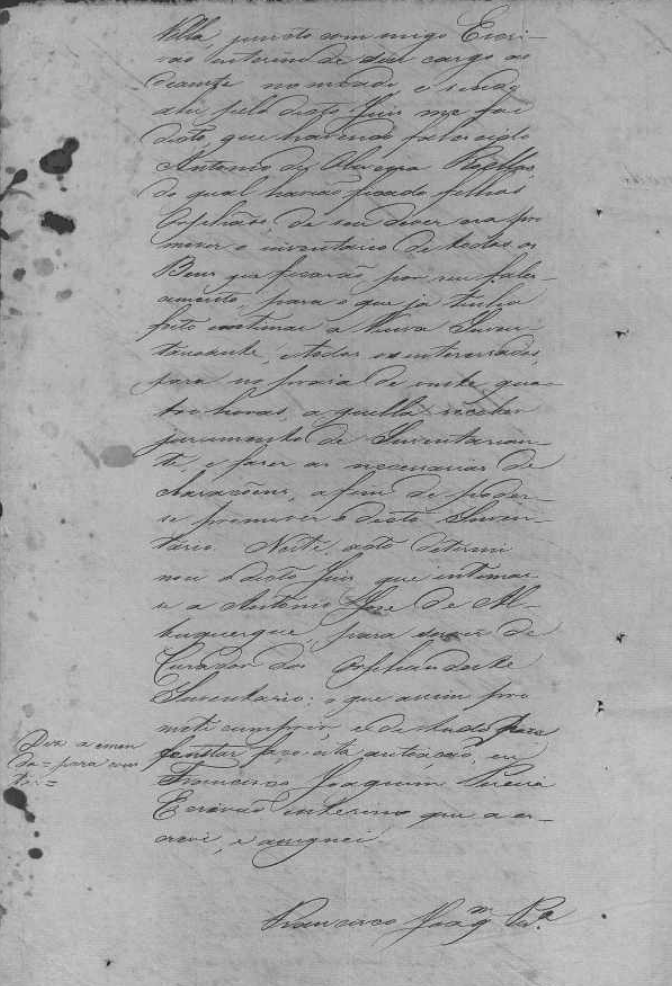 Villa, puncto com migo Escri-
vão interino de seu cargo ao
deante nomeado, e sendo
ahi pelo dicto Juis me foi
dicto, que havendo fallecido
Antonio de Oliveira
do qual havião ficado filhos
Orphãos, de seu dever era pro
mover o inventario de todos os
Bens que ficarão por seu falec-
imento, para o que ja tinha
feito intimar a Viuva Inven-
tariante, e todos os interessados,
para no praso de vinte, qua-
tro horas, aquella receber
juramento de Inventarian-
te, e faser as necessarias de
clarações, a fim de poder-
se promover o dicto Inven-
tario. Neste acto determi
nou o dicto Juis, que intimas-
se a Antonio Jose de Al-
buquerque, para servir de
Curador dos Orphãos deste
Inventario; o que assim pro
meti cumprir, e de tudo para
constar, faço esta autoação, eu
Francisco Joaquim Pereira
Escrivão interino que a es-
crevi, e assignei.
Diz a emen
da = para cons
tar =
Francisco Joaqm Pera